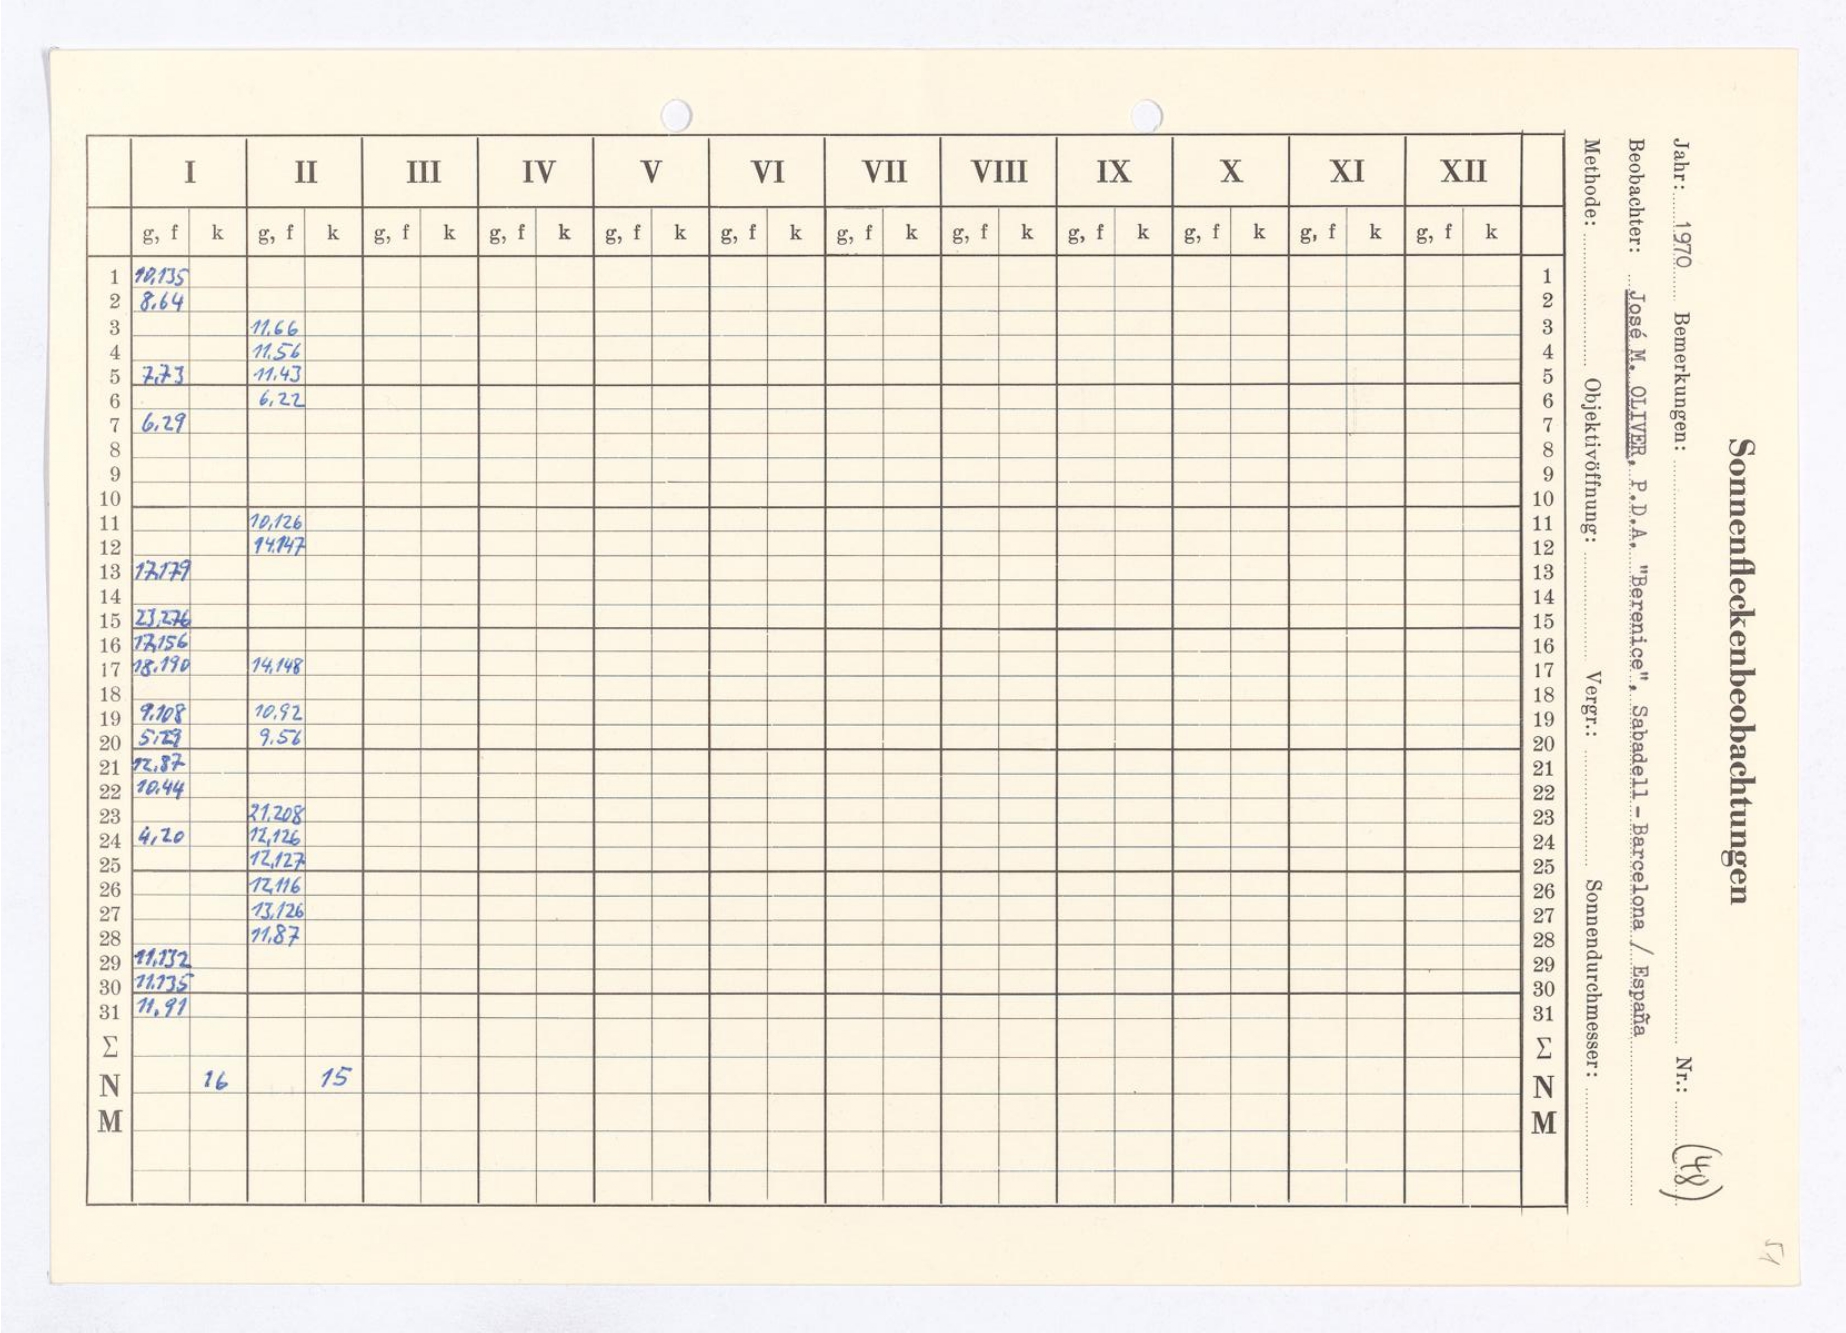 Sonnenfleckenbeobachtungen
Jahr: 1970 Bemerkungen: Nr.: (48)
Beobachter: José M. OLIVER, P.D.A. "Berenice", Sabadell-Barcelona / España
Methode: Objektivöffnung: Vergr.: Sonnendurchmesser:
I II III IV V VI VII VIII IX X XI XII
g, f k g, f k g, f k g, f k g, f k g, f k g, f k g, f k g, f k g, f k g, f k g, f k
1 10,135 1
2 8,64 2
3 11,66 3
4 11,56 4
5 7,73 11,43 5
6 6,22 6
7 6,29 7
8 8
9 9
10 10
11 10,126 11
12 14,147 12
13 17,179 13
14 14
15 23,276 15
16 17,156 16
17 18,190 14,148 17
18 18
19 9,108 10,92 19
20 9,56 20
21 12,87 21
22 10,44 22
23 21,208 23
24 4,20 12,126 24
25 12,127 25
26 12,116 26
27 13,126 27
28 11,87 28
29 11,132 29
30 11,135 30
31 11,91 31
Σ Σ
N 16 15 N
M M
51